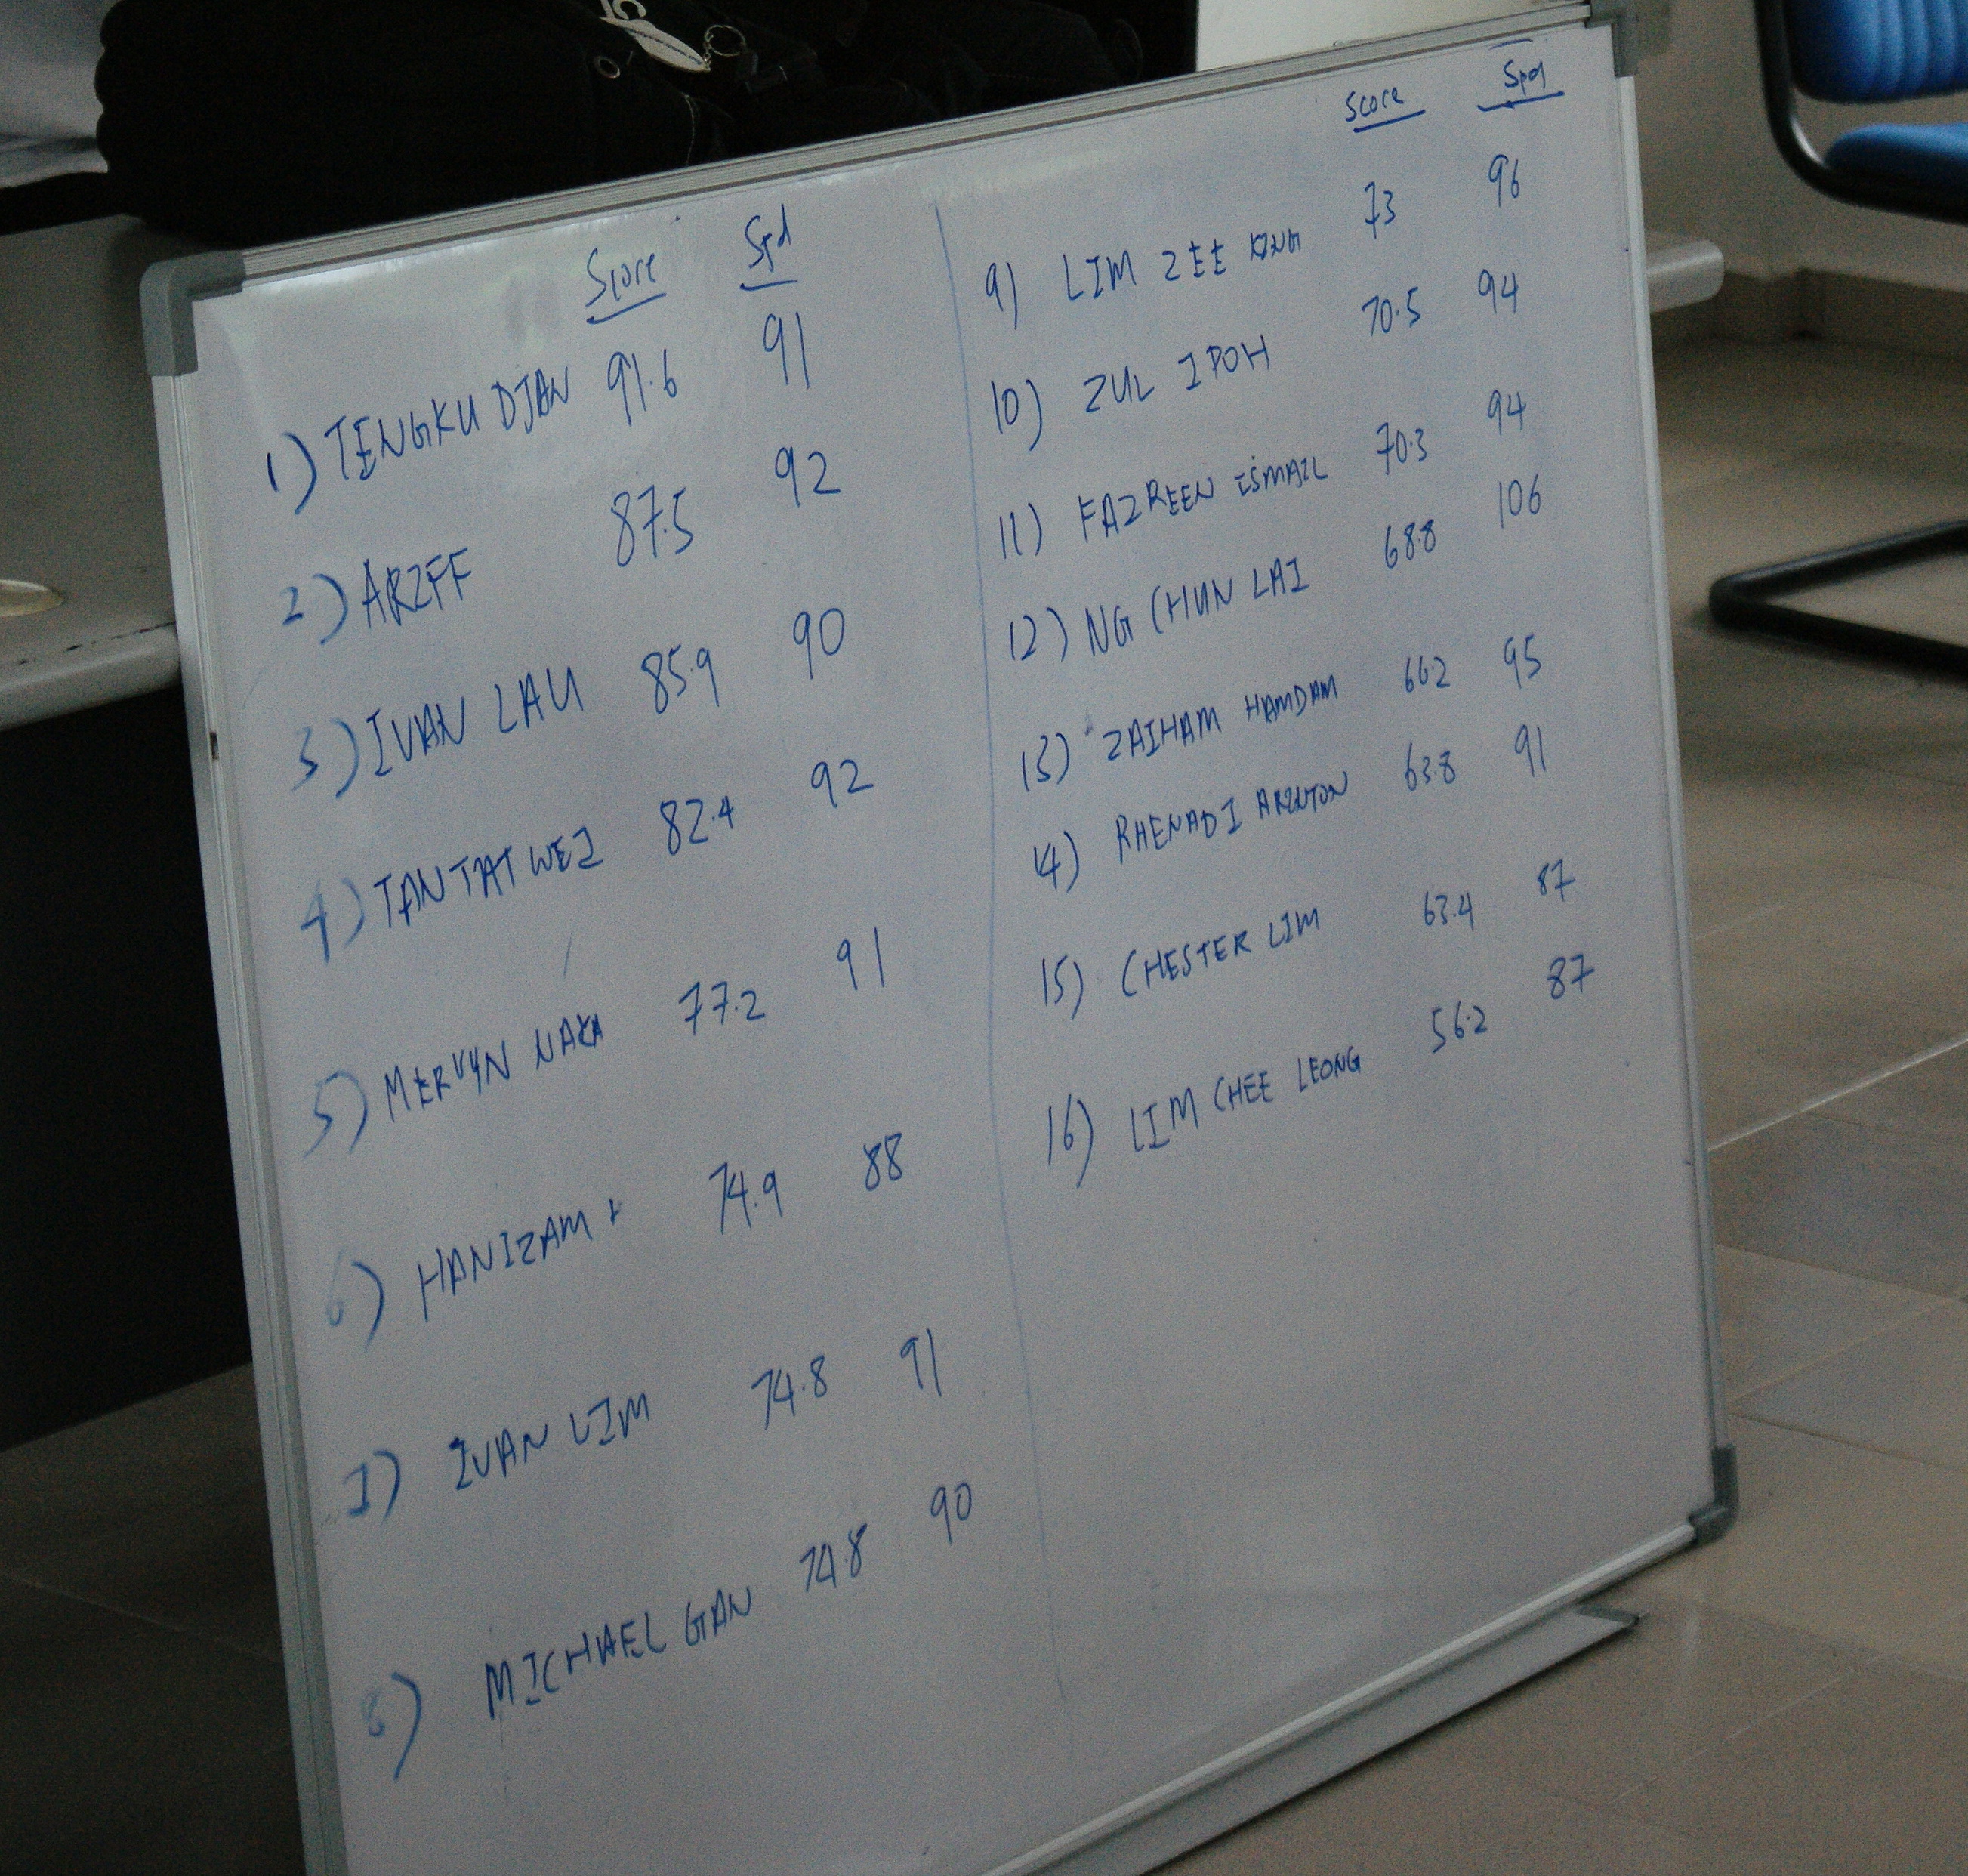 Score Spd
1) TENGKU DJAN 91.6 91
2) ARIFF 87.5 92
3) IVAN LAU 85.9 90
4) TAN TAT WEI 82.4 92
5) MERVYN NAKA 77.2 91
6) HANIZAM 74.9 88
7) IVAN LIM 74.8 91
8) MICHAEL GAN 74.8 90
Score Spd
9) LIM ZEE 73 96
10) ZUL IPOH 70.5 94
11) FAZREEN ISMAIL 70.3 94
12) NG CHUN LAI 68.8 106
13) ZAIHAM HAMDAM 66.2 95
14) RHENADI 63.8 91
15) CHESTER LIM 63.4 87
16) LIM CHEE LEONG 56.2 87